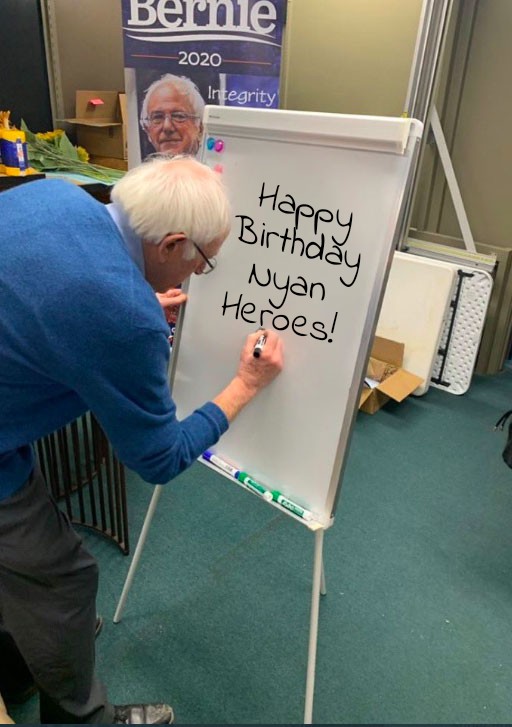 Bernie
2020
Integrity
Happy
Birthday
Nyan
Heroes!